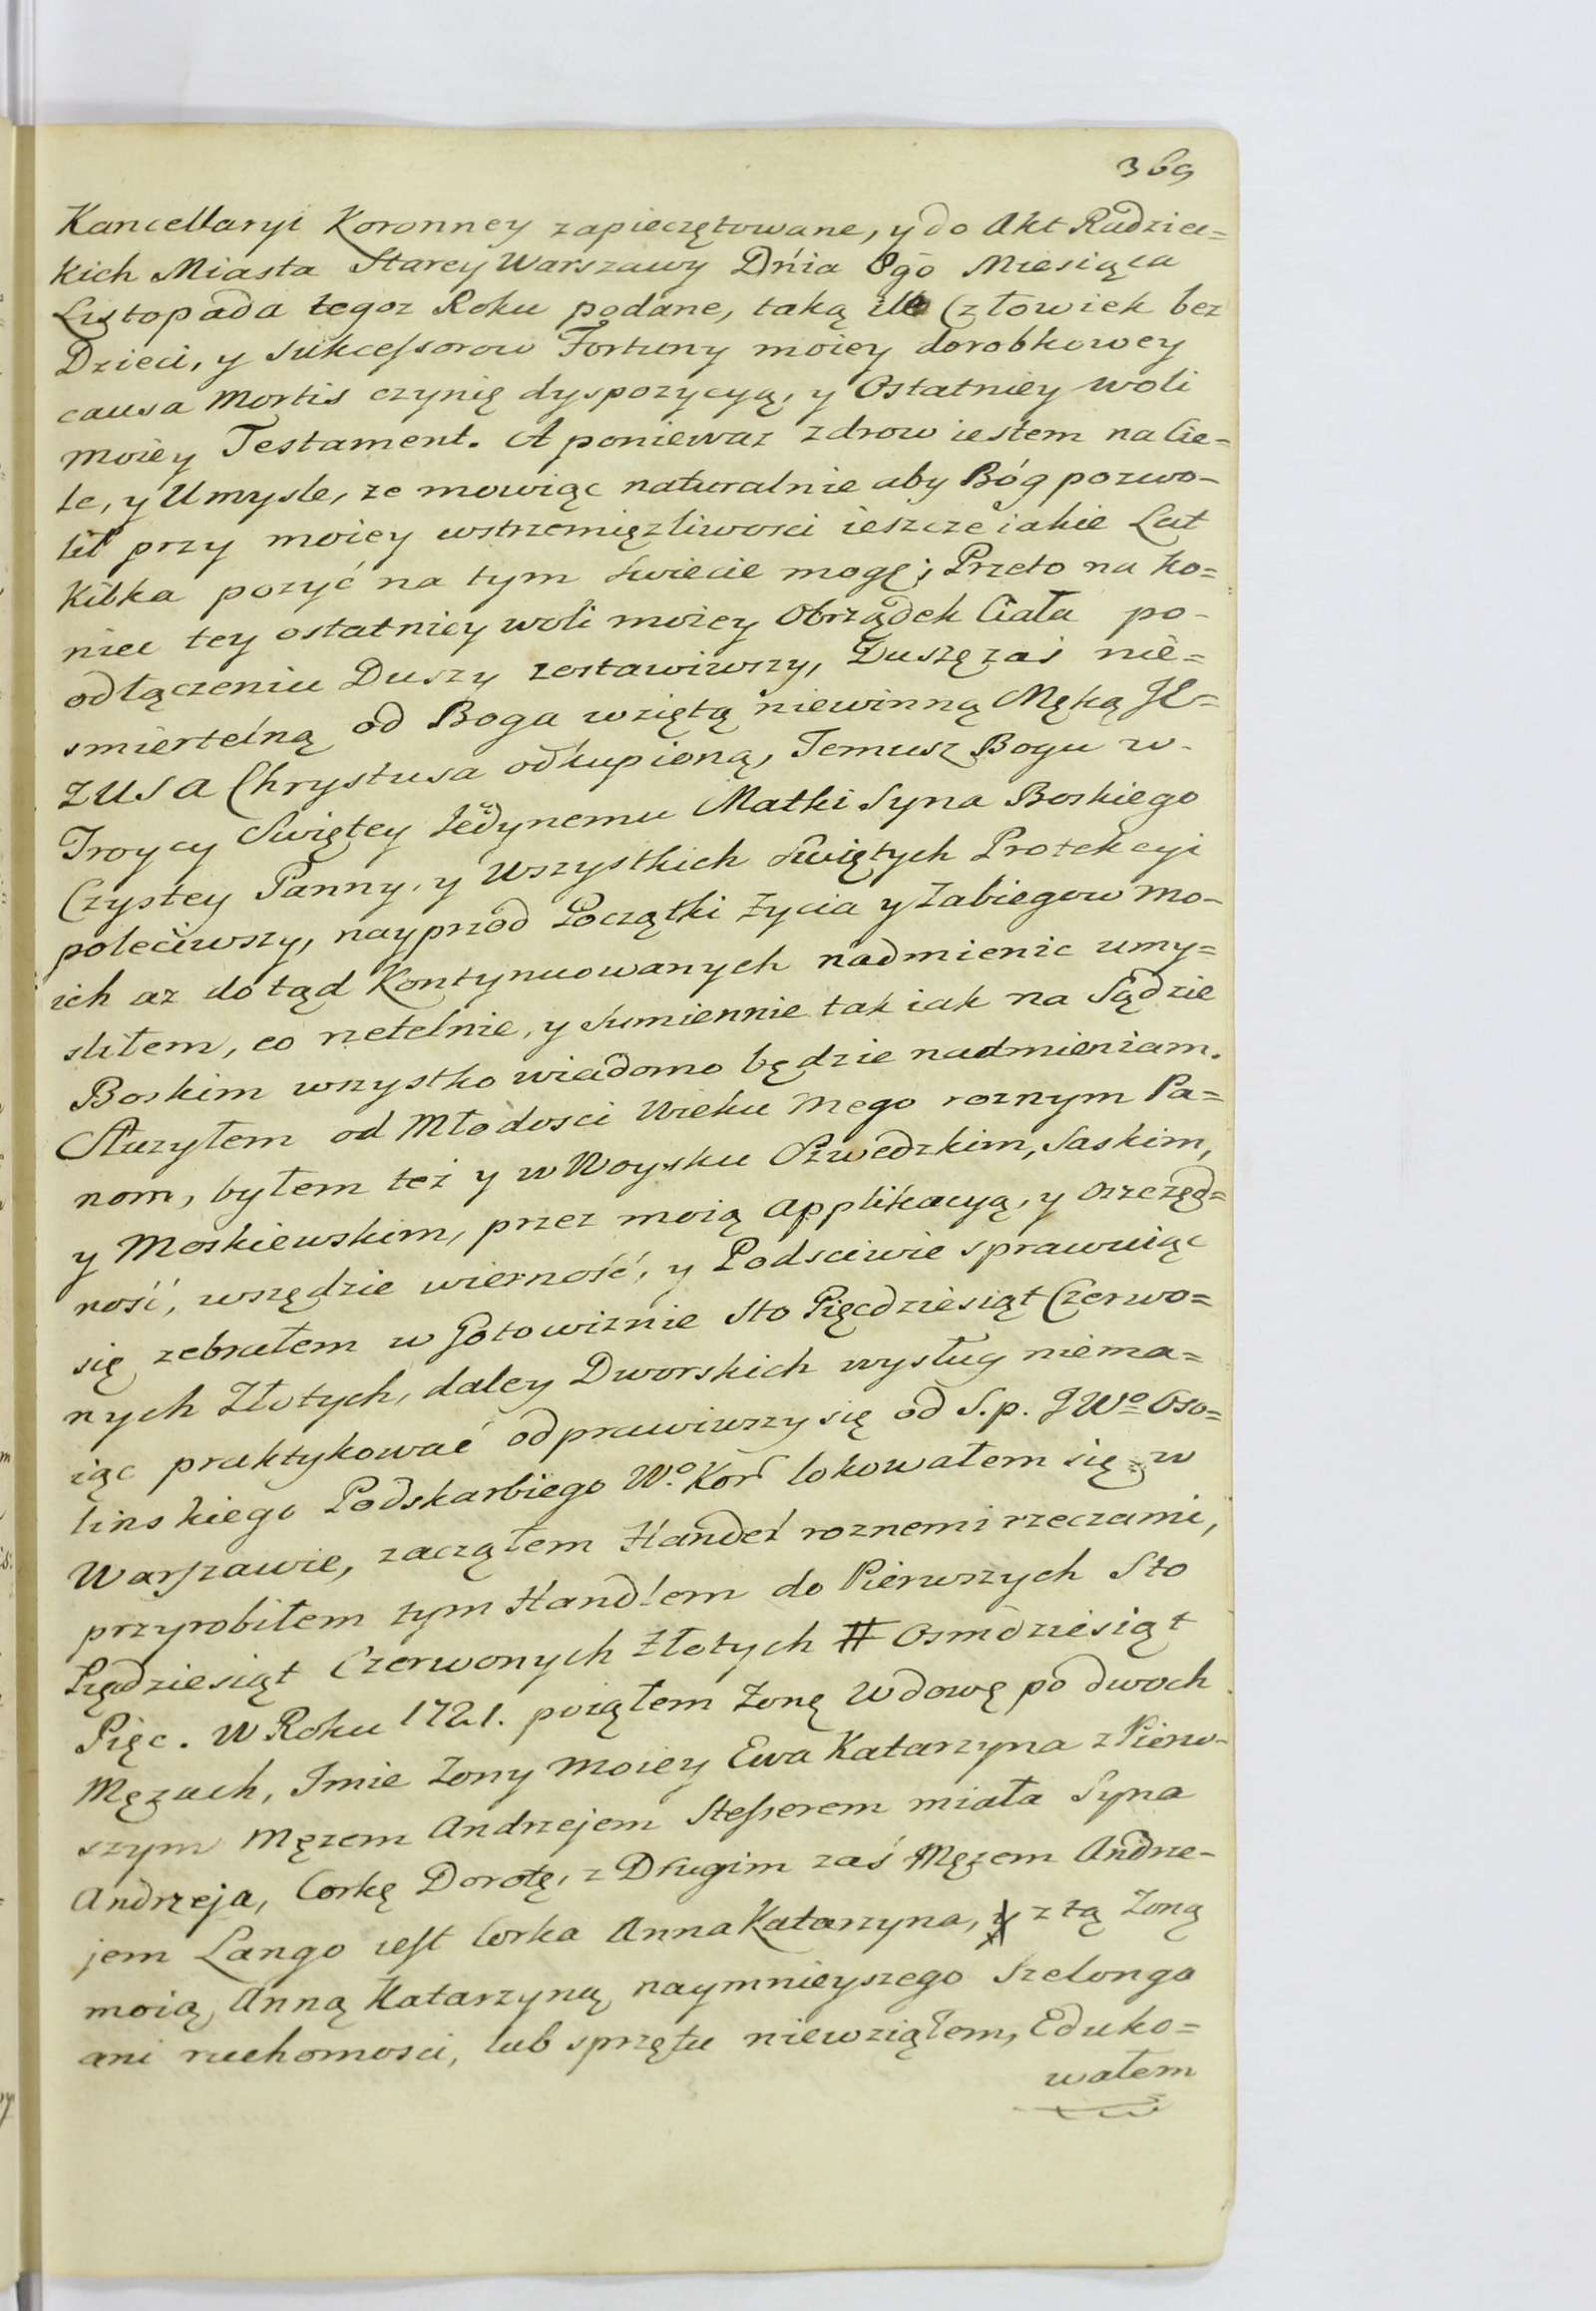 369
Kancellaryi Koronney zapieczętowane, y do Akt Radziec=
kich Miasta Starey Warszawy Dnia 8go Miesiąca
Listopada tegoz Roku podane, taką ile Człowiek bez
Dzieci, y Sukcessorow Fortuny moiey dorobkowey
causa Mortis czynię dyspozycyą, y Ostatniey woli
moiey Testament. A poniewaz zdrow iestem na Cie=
le, y Umysle, ze mowiąc naturalnie aby Bóg pozwo-
lił przy moiey wstrzemięzliwosci ieszcze iakie Lat
Kilka pozyć na tym swiecie mogę; Przeto na ko=
niec tey ostatniey woli moiey Obrządek Ciała po-
odłączeniu Duszy zostawiwszy, Duszę zaś nie=
smiertelną od Boga wziętą niewinną Męką JE=
ZUSA Chrystusa odkupioną, Temusz Bogu w-
Troycy Swiętey Jedynemu Matki Syna Boskiego
Czystey Panny, y Wszystkich Swiętych Protekcyi
poleciwszy, nayprzod Początki Zycia y Zabiegow mo-
ich az dotąd Kontynuowanych nadmienic umy=
sliłem, co rzetelnie, y Sumiennie tak iak na Sądzie
Boskim wszystko wiadomo będzie nadmieniam.
Słuzyłem od Młodosci Wieku mego roznym Pa=
nom, byłem też y w Woysku Szwedzkim, Saskim,
y Moskiewskim, przez moią applikacyą, y oszczęd=
ność, wszędzie wierność, y Podsciwie sprawuiąc
się zebrałem w Gotowiznie Sto Pięcdziesiąt Czerwo=
nych Złotych, daley Dworskich wysług niema=
iąc praktykować odprawiwszy się od S.p. JWo Oso=
linskiego Podskarbiego Wo. Kor lokowałem się w
Warszawie, zacząłem Handel roznemi rzeczami,
przyrobiłem tym Handlem do Pierwszych Sto
Pięcdziesiąt Czerwonych Złotych # Osmdziesiąt
Pięc. W Roku 1721. poiąłem Zonę Wdowę po dwoch
Męzach, Imie Zony moiey Ewa Katarzyna z Pierw-
szym Męzem Andrzejem Stesserem miała Syna
Andrzeja, Corkę Dorotę, z Drugim zaś Męzem Andrze-
jem Lango iest Corka Anna Katarzyna, z tą Zoną
moią, Anną Katarzyną naymnieyszego Szelonga
ani ruchomosci, lub sprzętu niewziąłem, Eduko=
wałem